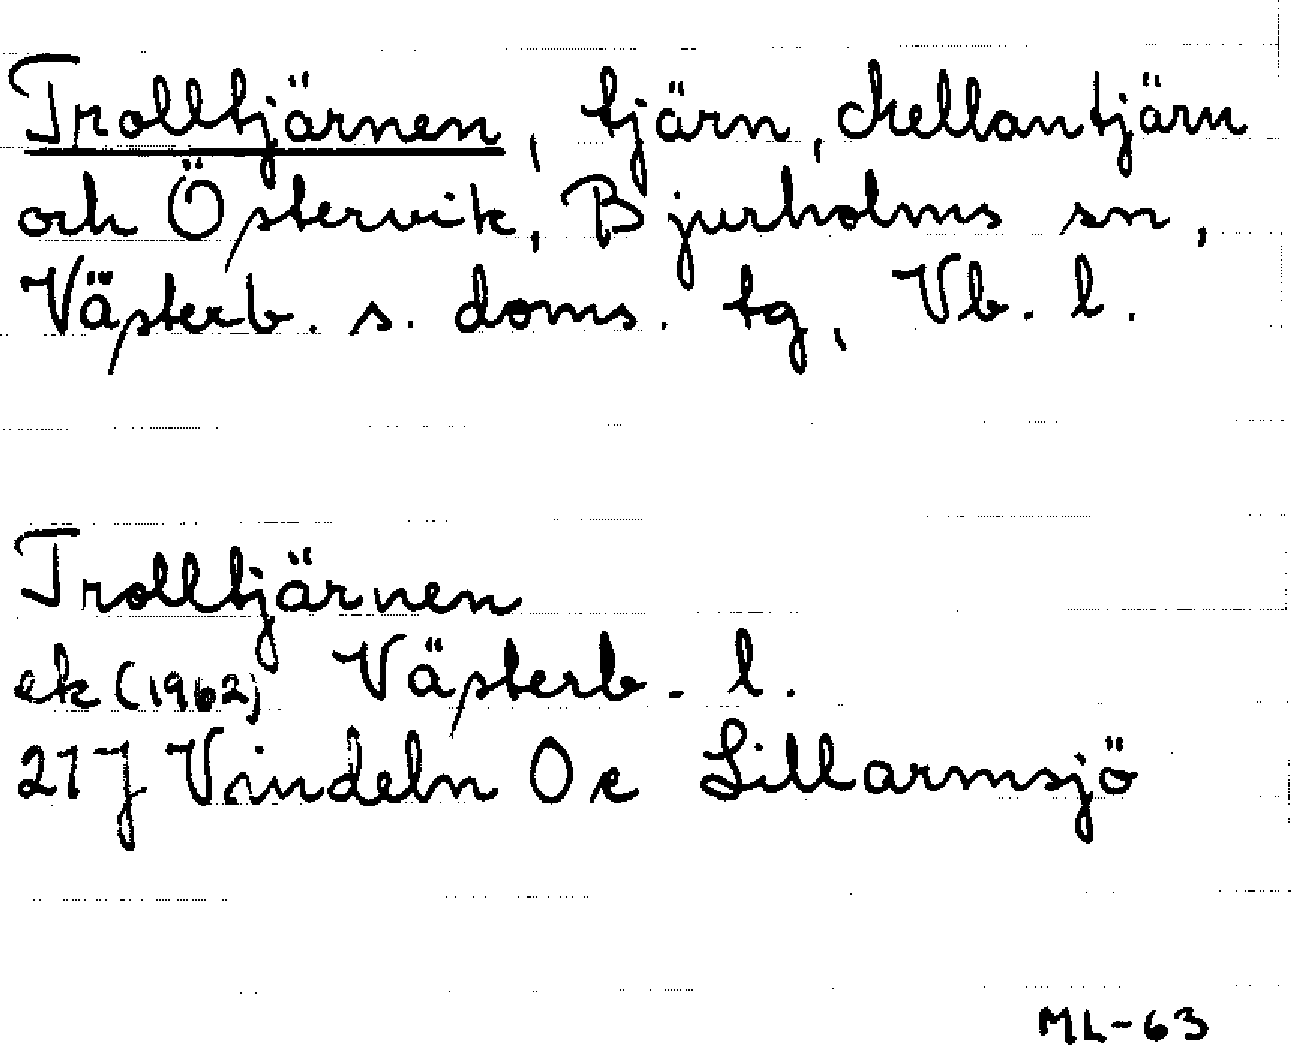 Trolltjärnen, tjärn, Mellantjärn
och Östervik, Bjurholms sn,
Västerb. s. doms. tg, Vb. l.
Trolltjärnen
ek (1962) Västerb. l.
21 J Vindeln 0 c Lillarmsjö
ML-63